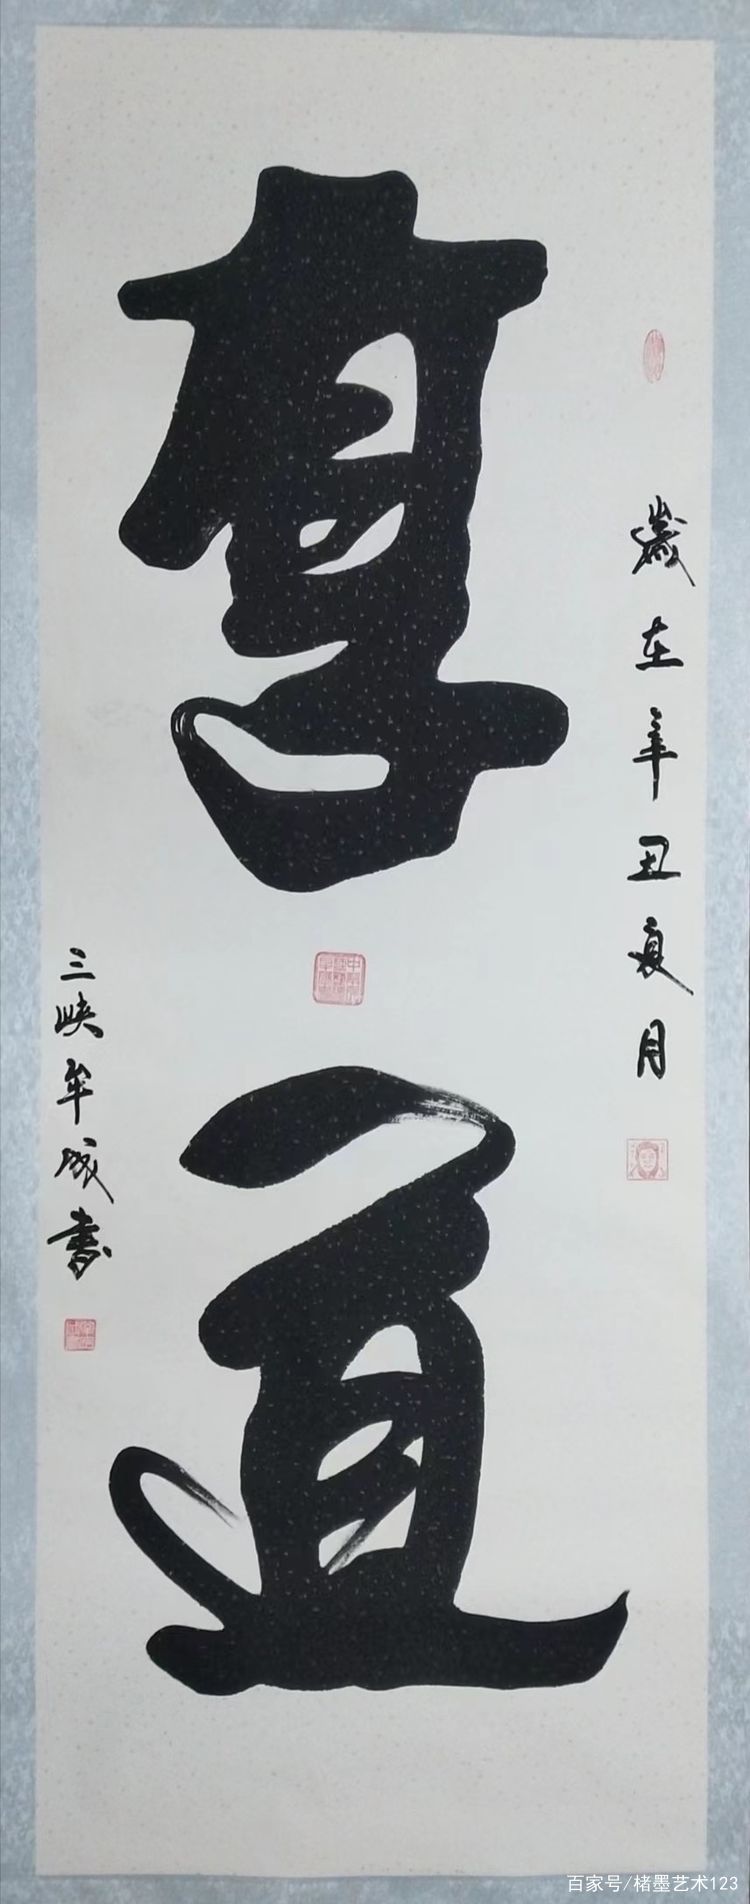 歲在辛丑夏月
厚道
三峡牟成書
百家号/楮墨艺术123